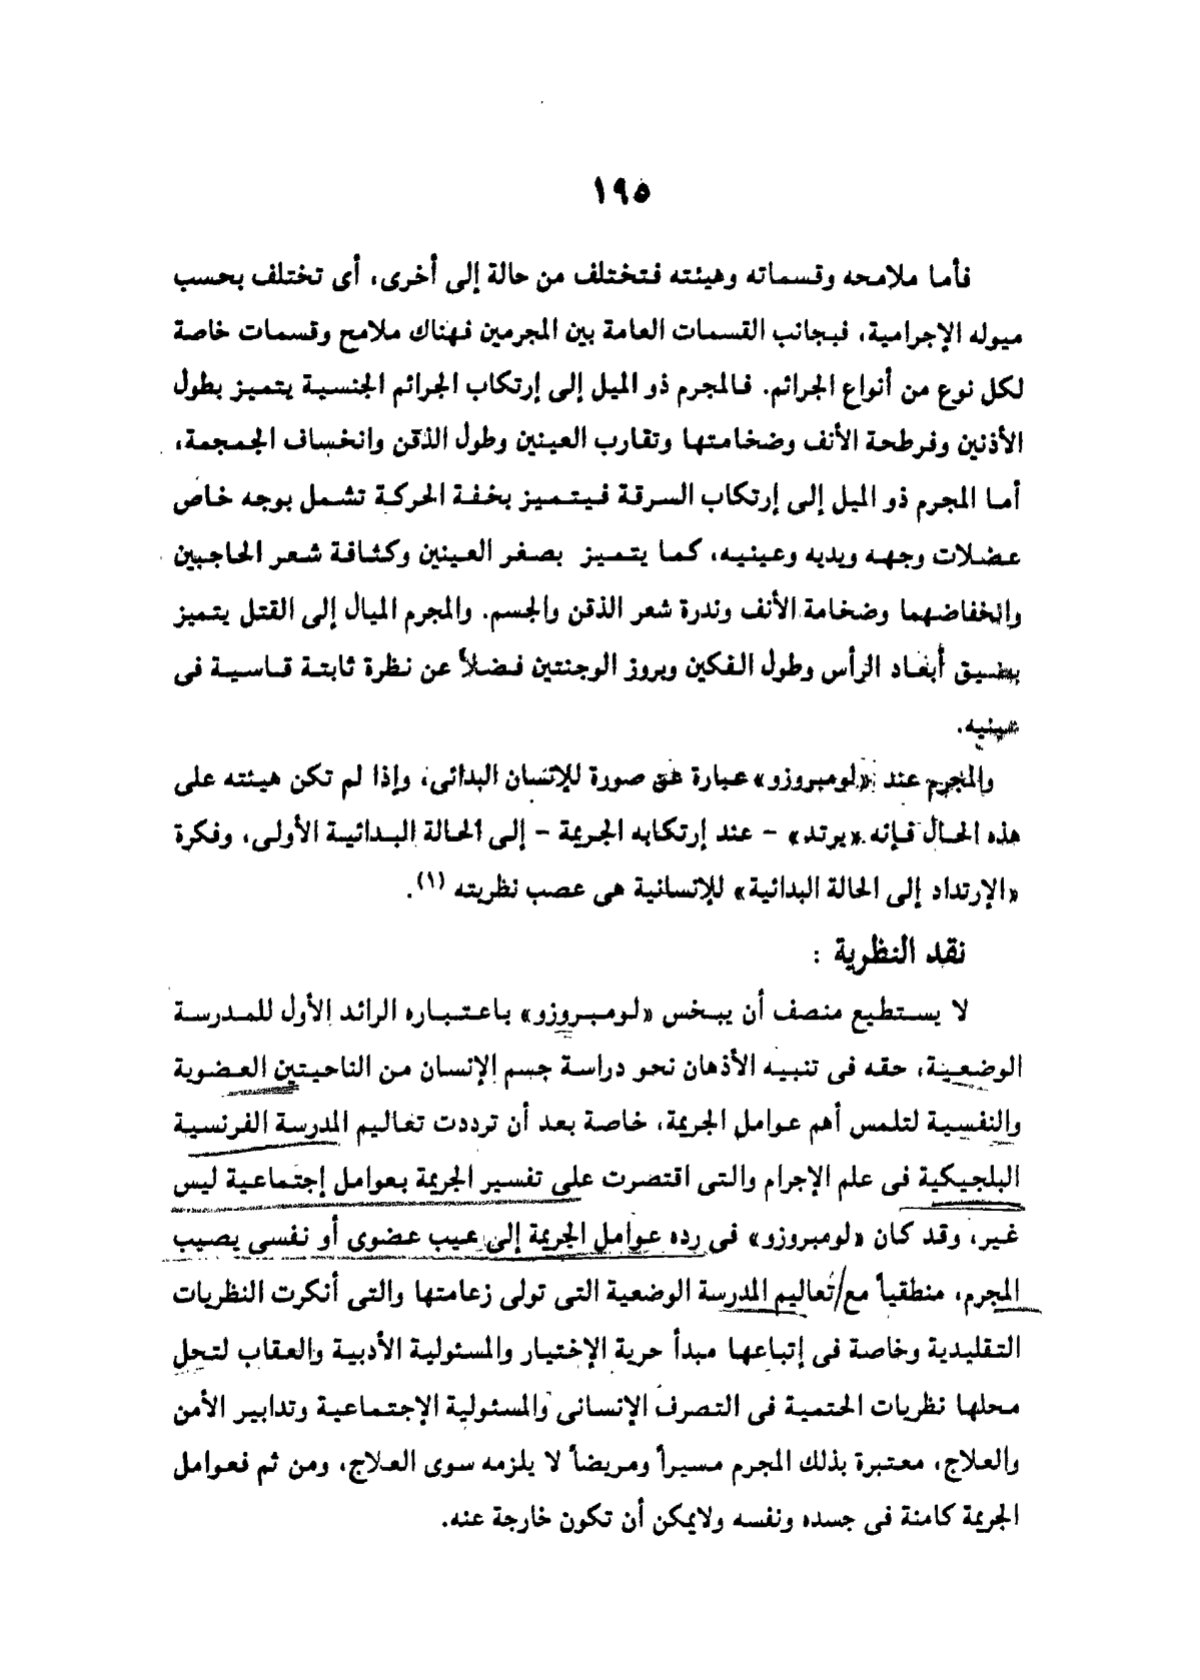 ١٩٥
فأما ملامحه وقسماته وهيئته فتختلف من حالة إلى أخرى، أى تختلف بحسب
ميوله الإجرامية، فبجانب القسمات العامة بين المجرمين فهناك ملامح وقسمات خاصة
لكل نوع من أنواع الجرائم. فالمجرم ذو الميل إلى إرتكاب الجرائم الجنسية يتميز بطول
الأذنين وفرطحة الأنف وضخامتها وتقارب العينين وطول الذقن وانخساف الجمجمة،
أما المجرم ذو الميل إلى إرتكاب السرقة فيتميز بخفة الحركة تشمل بوجه خاص
عضلات وجهه ويديه وعينيه، كما يتميز بصغر العينين وكثافة شعر الحاجبين
وانخفاضهما وضخامة الأنف وندرة شعر الذقن والجسم. والمجرم الميال إلى القتل يتميز
بضيق أبعاد الرأس وطول الفكين وبروز الوجنتين فضلاً عن نظرة ثابتة قاسية فى
عينيه.
والمجرم عند «لومبروزو» عبارة عن صورة للإنسان البدائى، وإذا لم تكن هيئته على
هذه الحال فإنه «يرتد» - عند إرتكابه الجريمة - إلى الحالة البدائية الأولى، وفكرة
«الإرتداد إلى الحالة البدائية» للإنسانية هى عصب نظريته (١).
نقد النظرية :
لا يستطيع منصف أن يبخس «لومبروزو» باعتباره الرائد الأول للمدرسة
الوضعية، حقه فى تنبيه الأذهان نحو دراسة جسم الإنسان من الناحيتين العضوية
والنفسية لتلمس أهم عوامل الجريمة، خاصة بعد أن ترددت تعاليم المدرسة الفرنسية
البلجيكية فى علم الإجرام والتى اقتصرت على تفسير الجريمة بعوامل إجتماعية ليس
غير، وقد كان «لومبروزو» فى رده عوامل الجريمة إلى عيب عضوى أو نفسى يصيب
المجرم، منطقياً مع تعاليم المدرسة الوضعية التى تولى زعامتها والتى أنكرت النظريات
التقليدية وخاصة فى إتباعها مبدأ حرية الإختيار والمسئولية الأدبية والعقاب لتحل
محلها نظريات الحتمية فى التصرف الإنسانى والمسئولية الإجتماعية وتدابير الأمن
والعلاج، معتبرة بذلك المجرم مسيراً ومريضاً لا يلزمه سوى العلاج، ومن ثم فعوامل
الجريمة كامنة فى جسده ونفسه ولايمكن أن تكون خارجة عنه.